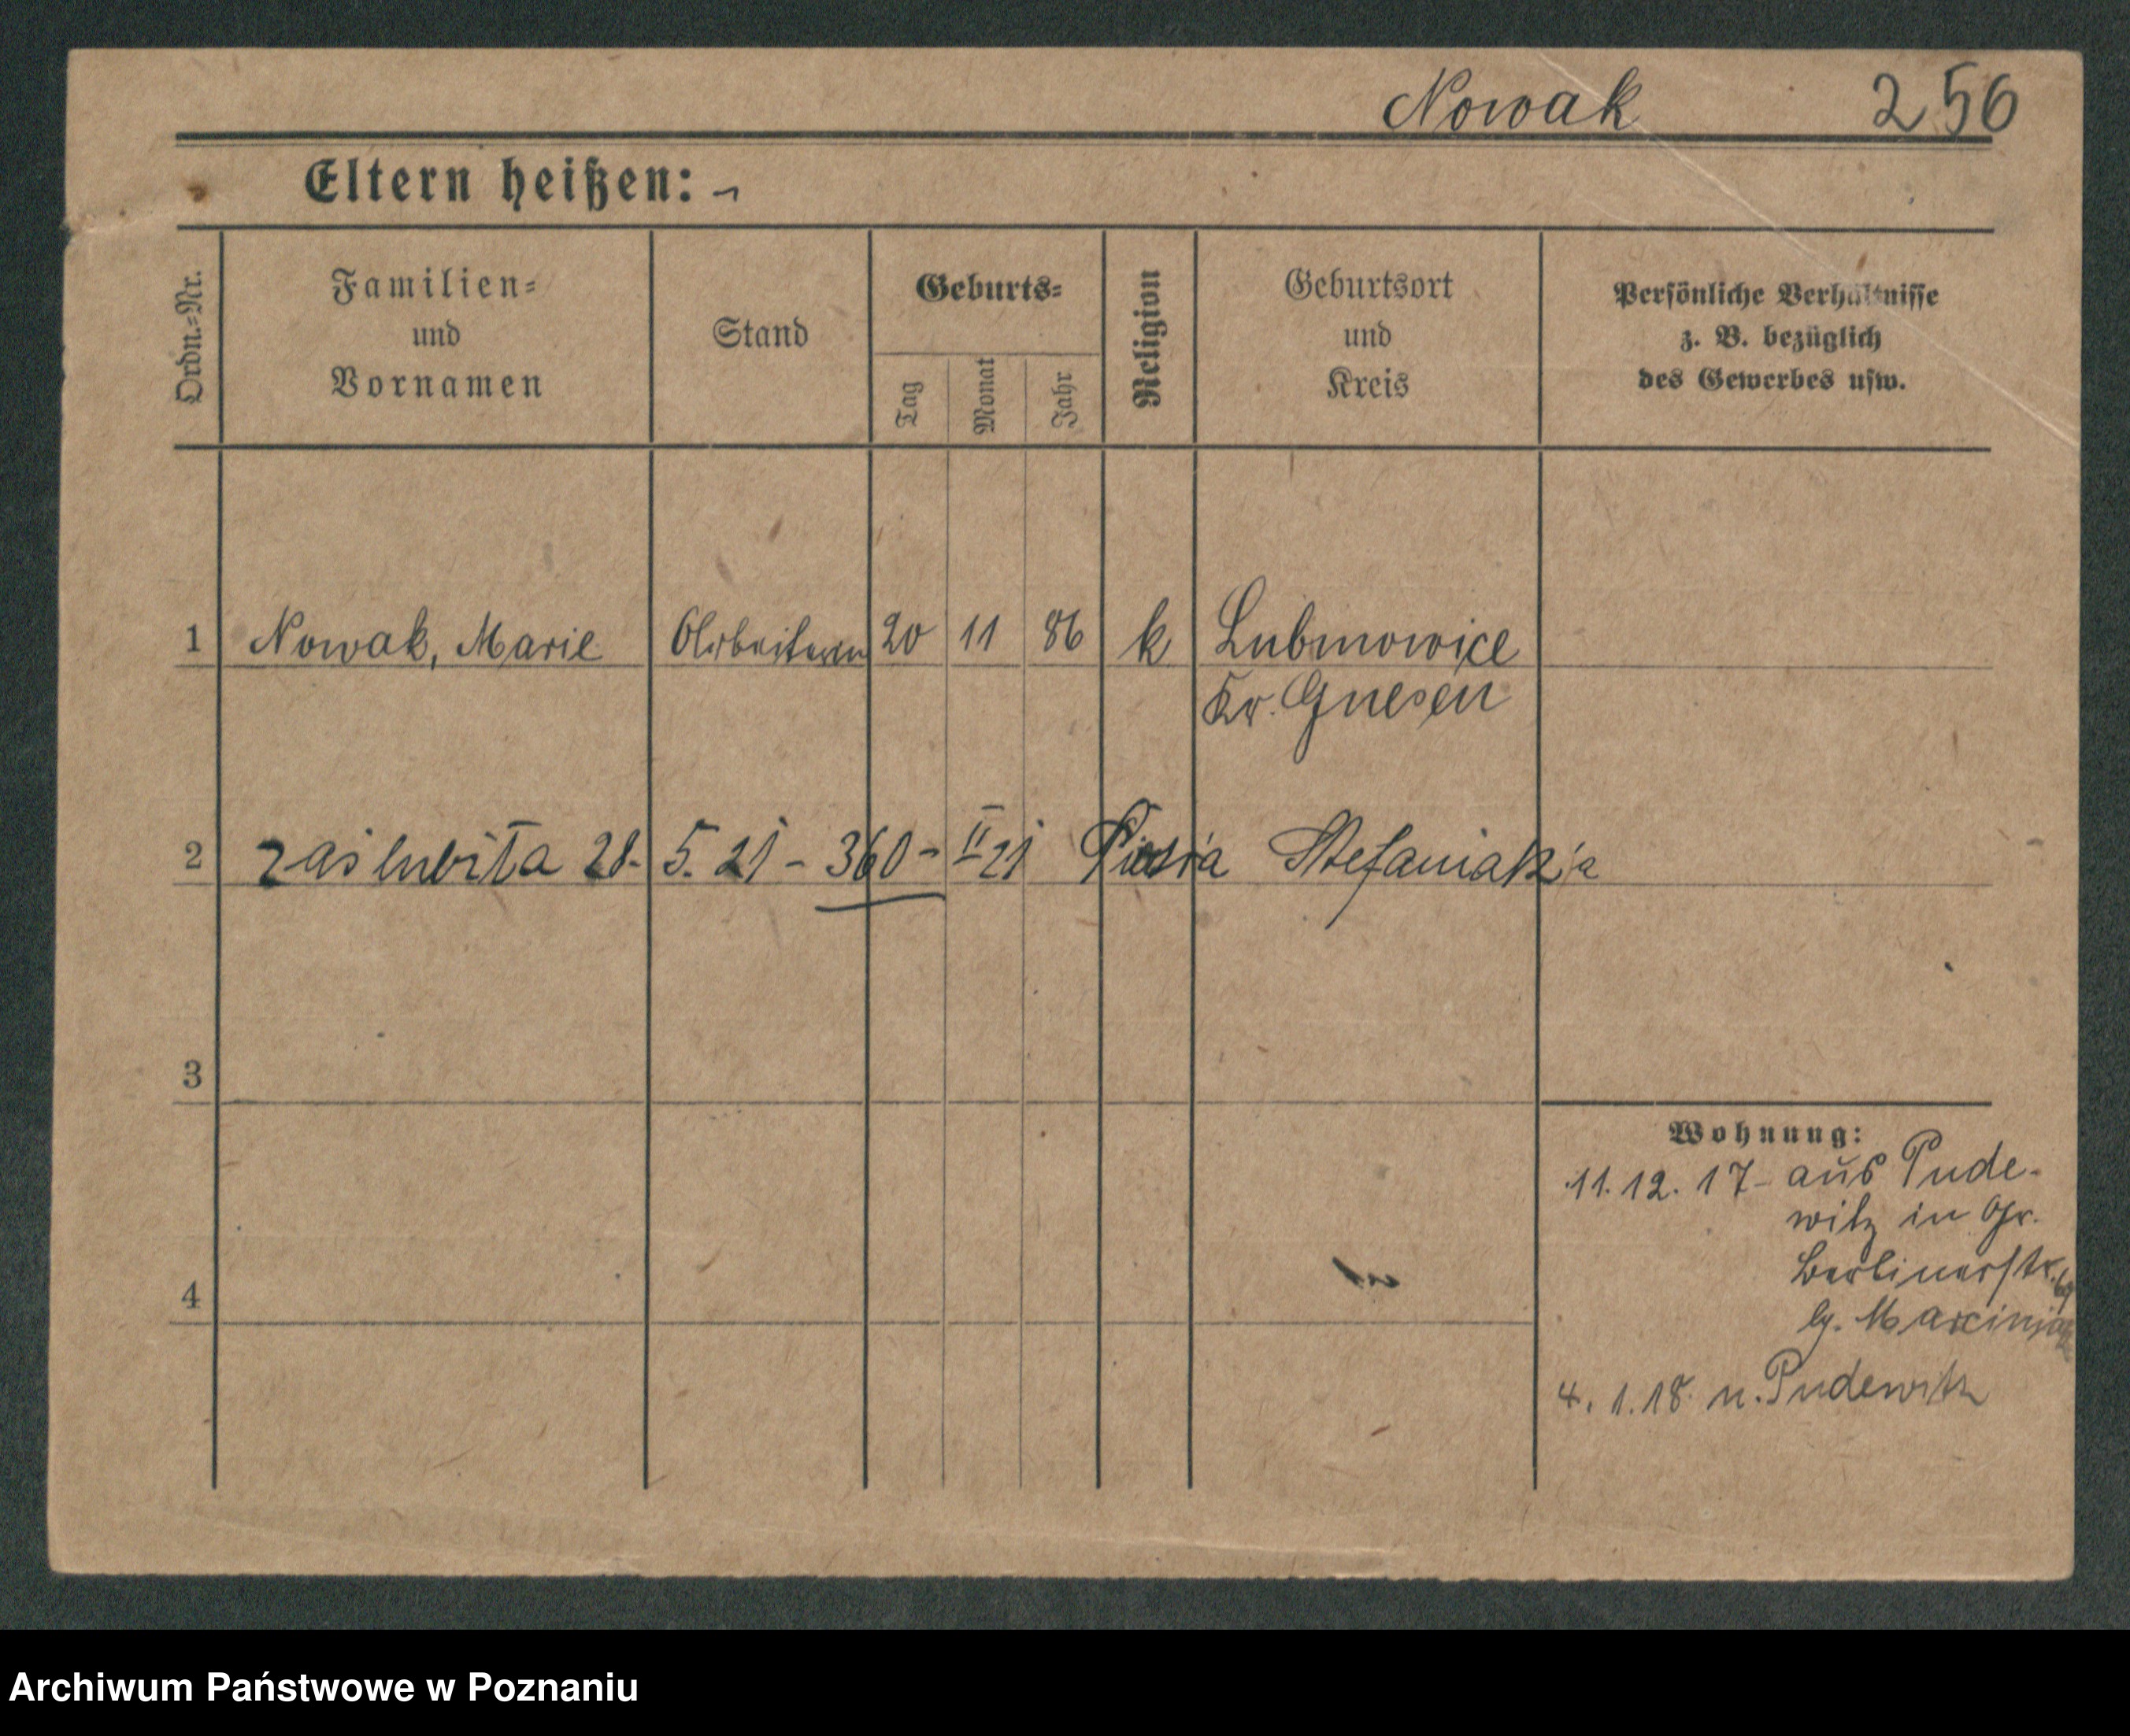 Nowak 256
Eltern heißen: –
Ordn.=Nr.
Familien=
und
Vornamen
Stand
Geburts=
Tag
Monat
Jahr
Religion
Geburtsort
und
Kreis
Persönliche Verhältnisse
z. B. bezüglich
des Gewerbes usw.
1 Nowak, Marie Arbeiterin 20 11 86 k Lubinowice
Kr. Gnesen
2 zaślubiła 28. 5. 21 – 360 – II 21 Piotra Stefaniaka
3
Wohnung:
11. 12. 17 – aus Pude-
witz in Gr.
4
Berlinerstr.
b. Marciniak
4. 1. 18 n. Pudewitz
Archiwum Państwowe w Poznaniu